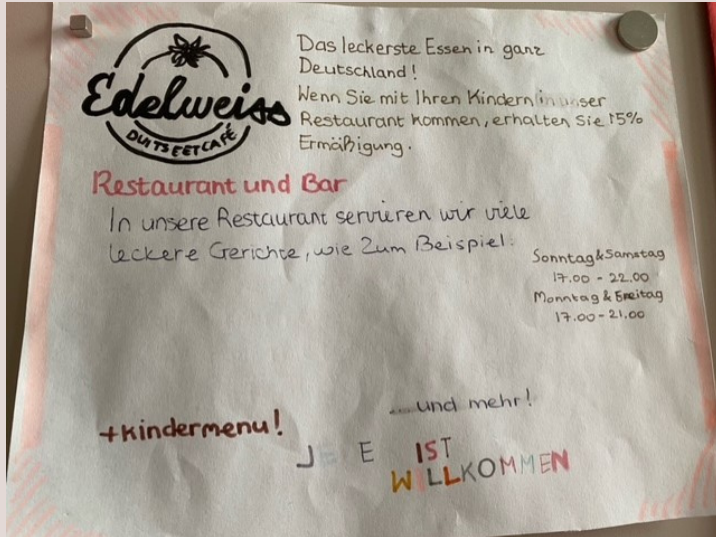 Edelweiss
DUITS EETCAFÉ
Das leckerste Essen in ganz
Deutschland!
Wenn Sie mit Ihren Kindern in unser
Restaurant kommen, erhalten Sie 15%
Ermäßigung.
Restaurant und Bar
In unsere Restaurant servieren wir viele
leckere Gerichte, wie zum Beispiel:
Sonntag & Samstag
17.00 - 22.00
Monntag & Freitag
17.00 - 21.00
....und mehr!
+kindermenu!
IST
WILLKOMMEN